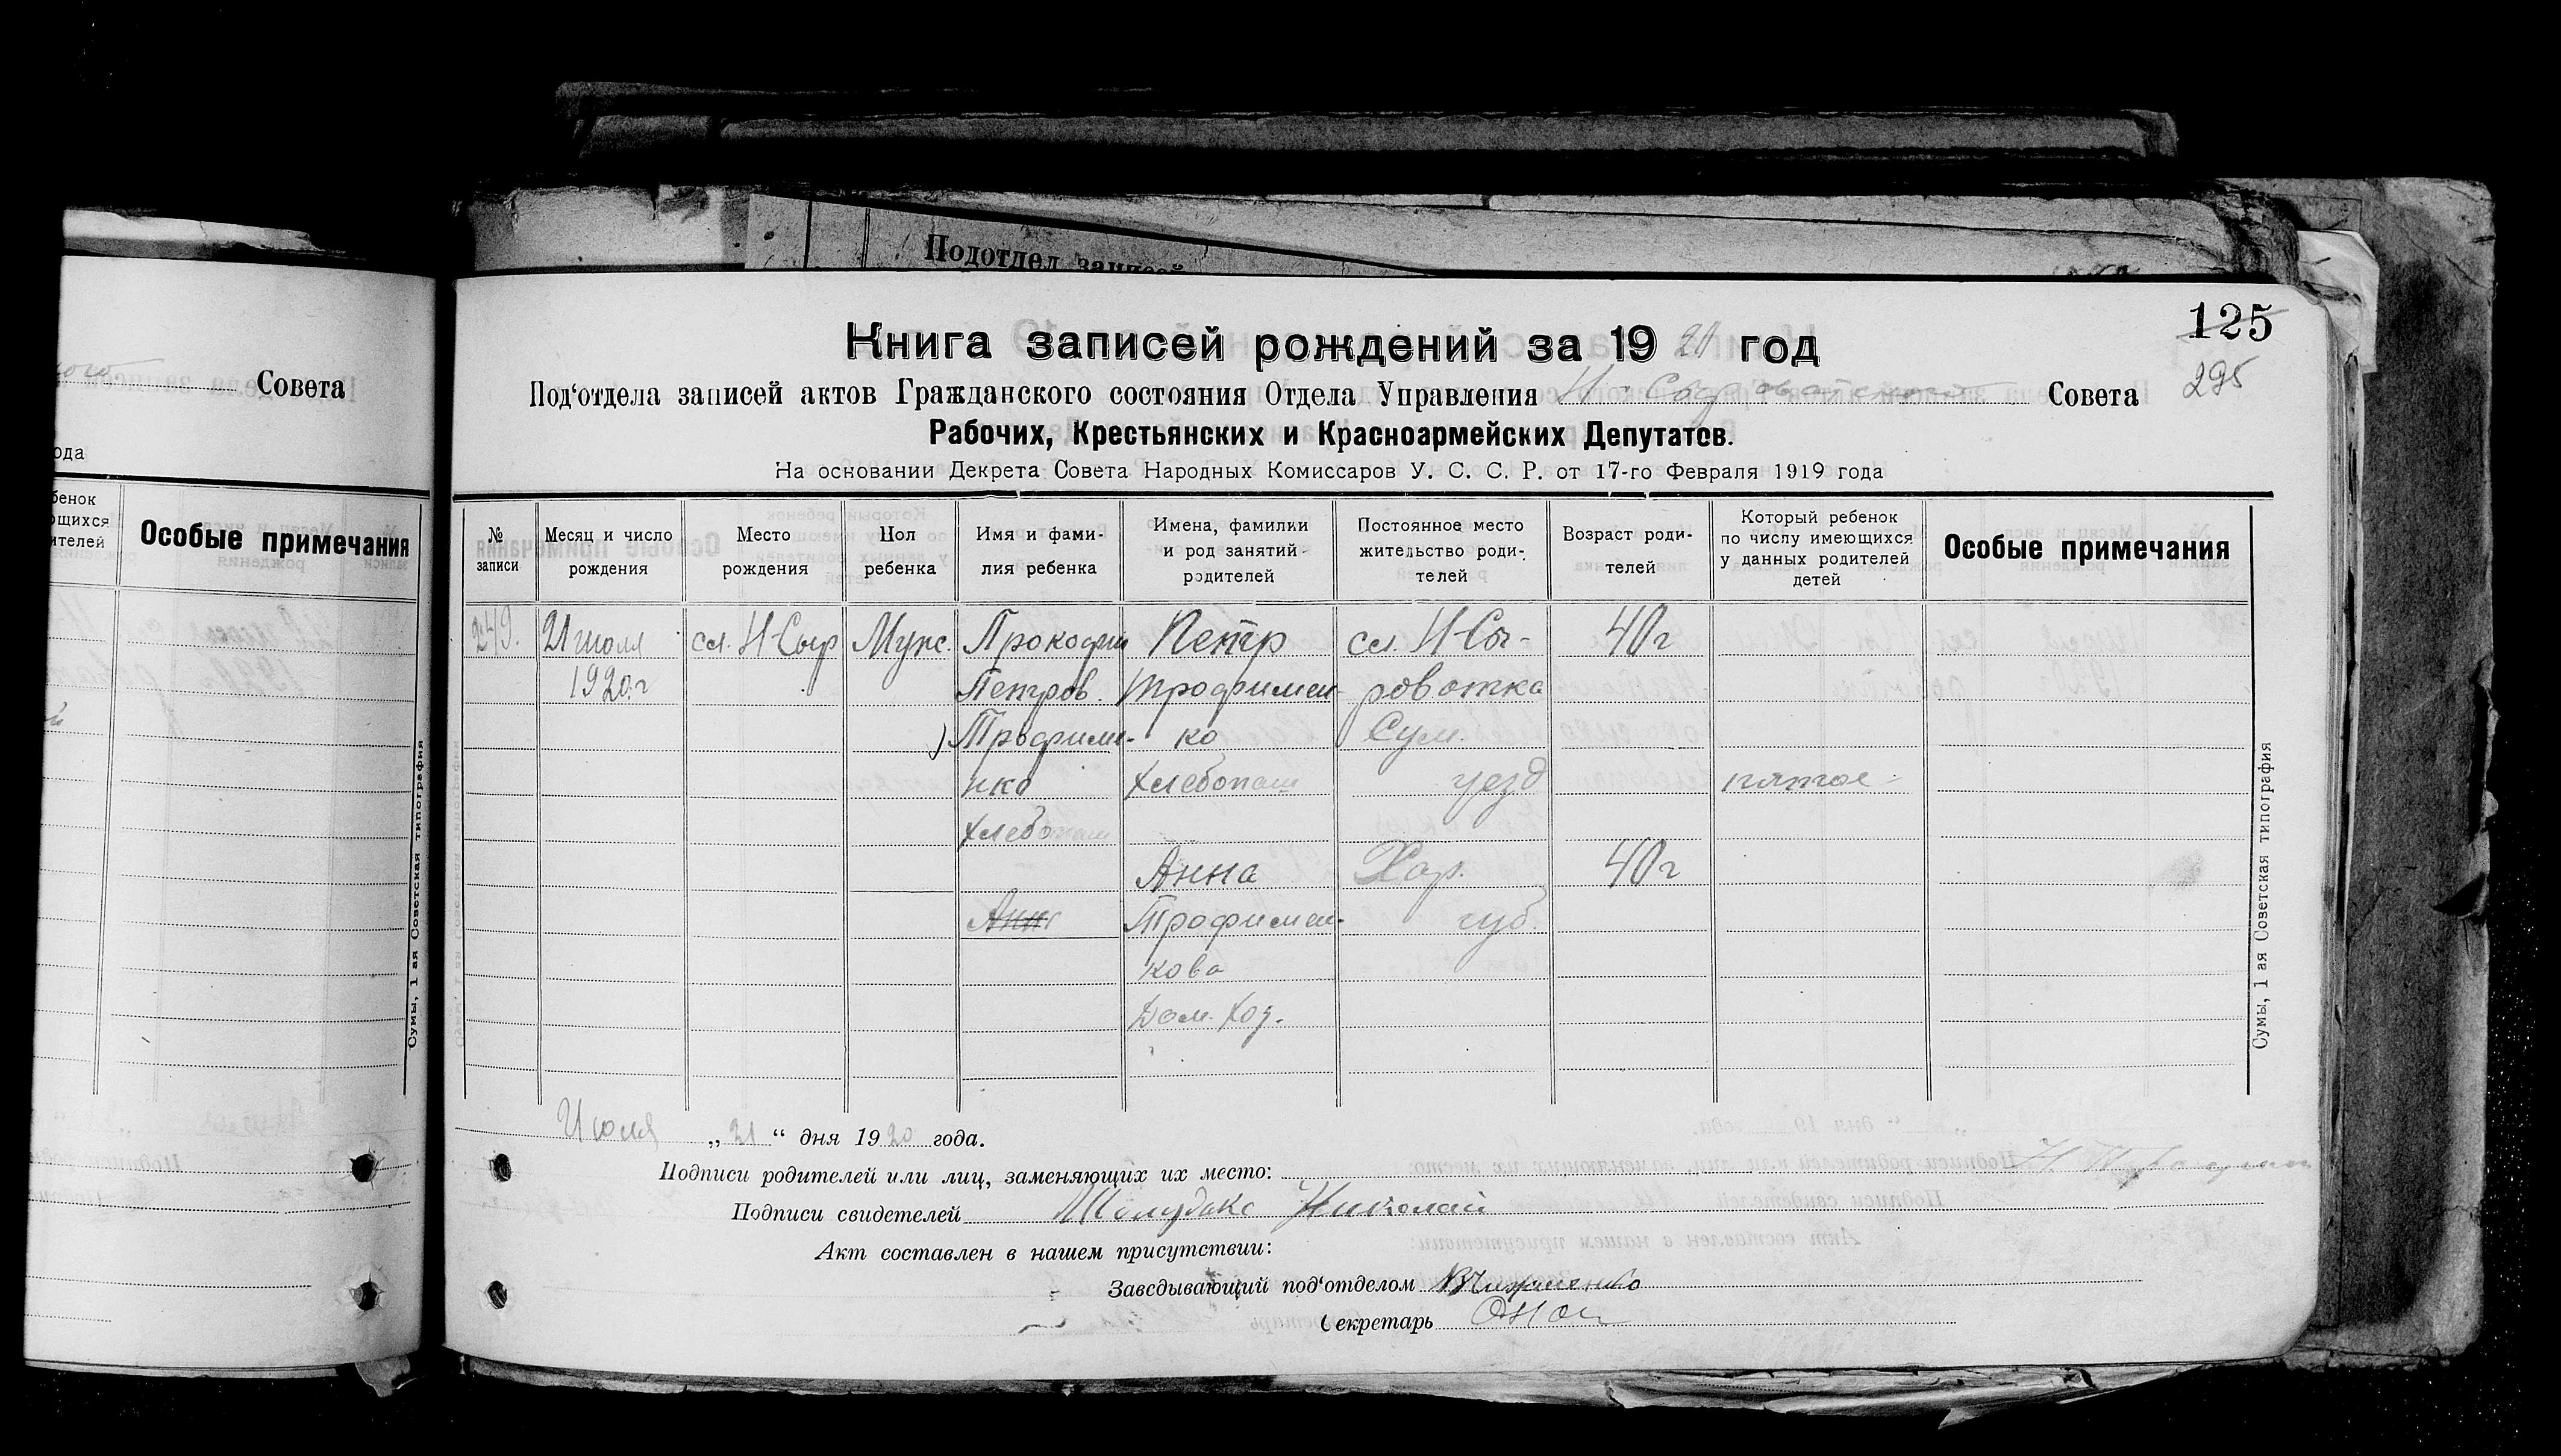 Подотдел записей
Совета
ода
бенок
ющихся
ителей
Особые примечания
Сумы, 1 ая Советская типография
125
295
Книга записей рождений за 1920 год
Под'отдела записей актов Гражданского состояния Отдела Управления Н-Сыроватского Совета
Рабочих, Крестьянских и Красноармейских Депутатов.
На основании Декрета Совета Народных Комиссаров У. С. С. Р. от 17-го Февраля 1919 года
№ записи
Месяц и число рождения
Место рождения
Пол ребенка
Имя и фами-
лия ребенка
Имена, фамилии
и род занятий
родителей
Постоянное место
жительство роди-
телей
Возраст роди-
телей
Который ребенок
по числу имеющихся
у данных родителей
детей
Особые примечания
249.
21 июля
1920 г
сл. Н-Сыр
Мужс.
Прокофий
Петров.
Трофиме-
нко
хлебопаш
Анна
Петр
Трофимен
ко
хлебопаш
Анна
Трофимен-
кова
Дом. хоз.
сл. Н-Сы-
роватка
Сум.
уезд
Хар.
губ.
40 г
40 г
пятое
Сумы, 1 ая Советская типография
Июля „21“ дня 1920 года.
Подписи родителей или лиц, заменяющих их место:
Подписи свидетелей Николай
Акт составлен в нашем присутствии:
Заведывающий под'отделом
Секретарь